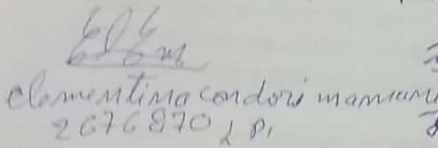 clementina condori mamani
2676870 LP.